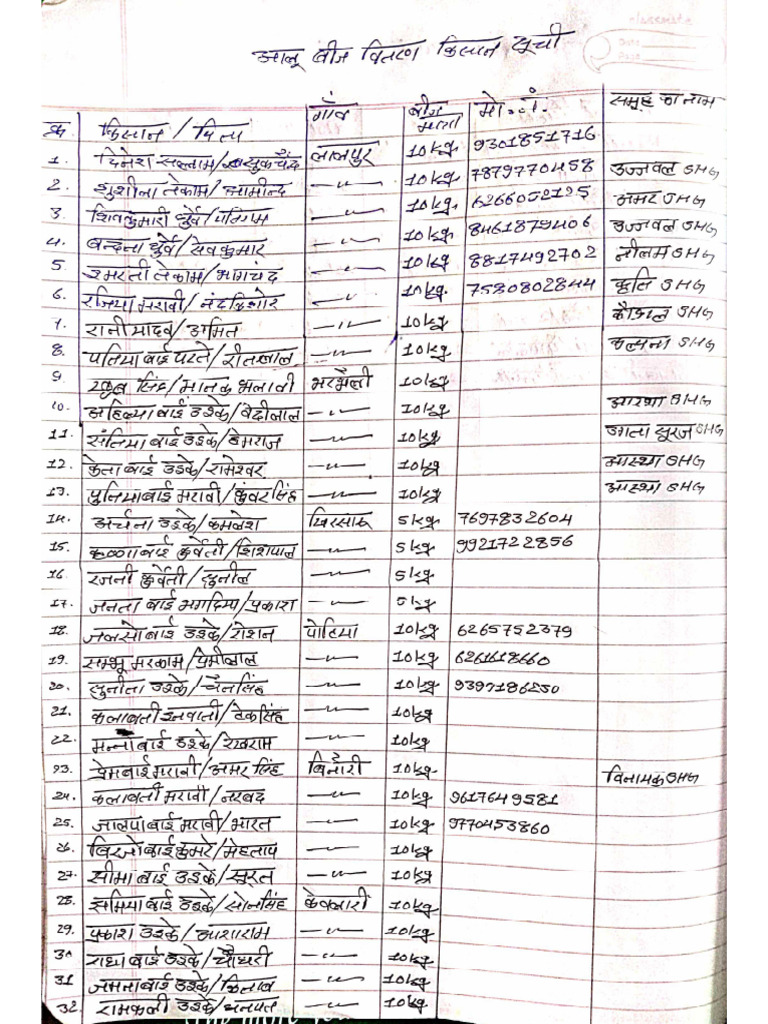 classmate
Date
Page
आलू बीज वितरण किसान सूची
क्र किसान / पिता गाँव बीज मात्रा मो. नं. समूह का नाम
1. दिनेश सल्लाम / सुकचंद लालपुर 10kg 9301851716
2. शुशीला तेकाम / जामीन्द —〃— 10kg 7879770458 उज्जवल SHG
3. शिवकुमारी धुर्वे / —〃— 10kg 6266052125 अमर SHG
4. वन्दना धुर्वे / सेवकुमार —〃— 10kg 8461879406 उज्जवल SHG
5. इमरती तेकाम / भागचंद —〃— 10kg 8817492702 नीलम SHG
6. रजिया मरावी / नंदकिशोर —〃— 10kg 7580802844 कृति SHG
7. रानी यादव / अमित —〃— 10kg कौशल SHG
8. पतिया बाई परते / रीतलाल —〃— 10kg कल्पना SHG
9. सिंह / मानक भलावी भरभैली 10kg
10. अहिल्या बाई उइके / वेदीलाल —〃— 10kg आरशा SHG
11. संतिया बाई उइके / हेमराज —〃— 10kg सुरज SHG
12. केता बाई उइके / रामेश्वर —〃— 10kg आस्था SHG
13. पुनिया बाई मरावी / कुंवर सिंह —〃— 10kg आस्था SHG
14. अर्चना उइके / कमलेश खिरसारू 5kg 7697832604
15. कृष्णा बाई कुर्वेती / शिशपाल —〃— 5kg 9921722856
16. रजनी कुर्वेती / —〃— 5kg
17. जनता बाई / प्रकाश —〃— 5kg
18. जलसो बाई उइके / रोशन पोटिया 10kg 6265752379
19. सम्भू मरकाम / प्रेमीलाल —〃— 10kg 6261618660
20. सुनीता उइके / चैनसिंह —〃— 10kg 9397186250
21. कलावती इनवाती / टेकसिंह —〃— 10kg
22. मन्नो बाई उइके / रेखराम —〃— 10kg
23. प्रेम बाई मरावी / अमर सिंह बिनेरी 10kg विनायक SHG
24. कलावती मरावी / नरबद —〃— 10kg 9617649581
25. जालपा बाई मरावी / भारत —〃— 10kg 9770453860
26. बिरजो बाई कुमरे / मेहताप —〃— 10kg
27. सीमा बाई उइके / सूरत —〃— 10kg
28. समिया बाई उइके / सोनसिंह केवलारी 10kg
29. प्रकाश उइके / आशाराम —〃— 10kg
30 राधा बाई उइके / चौधरी —〃— 10kg
31 जमता बाई उइके / किताब —〃— 10kg
32. रामकली उइके / धनपत —〃— 10kg